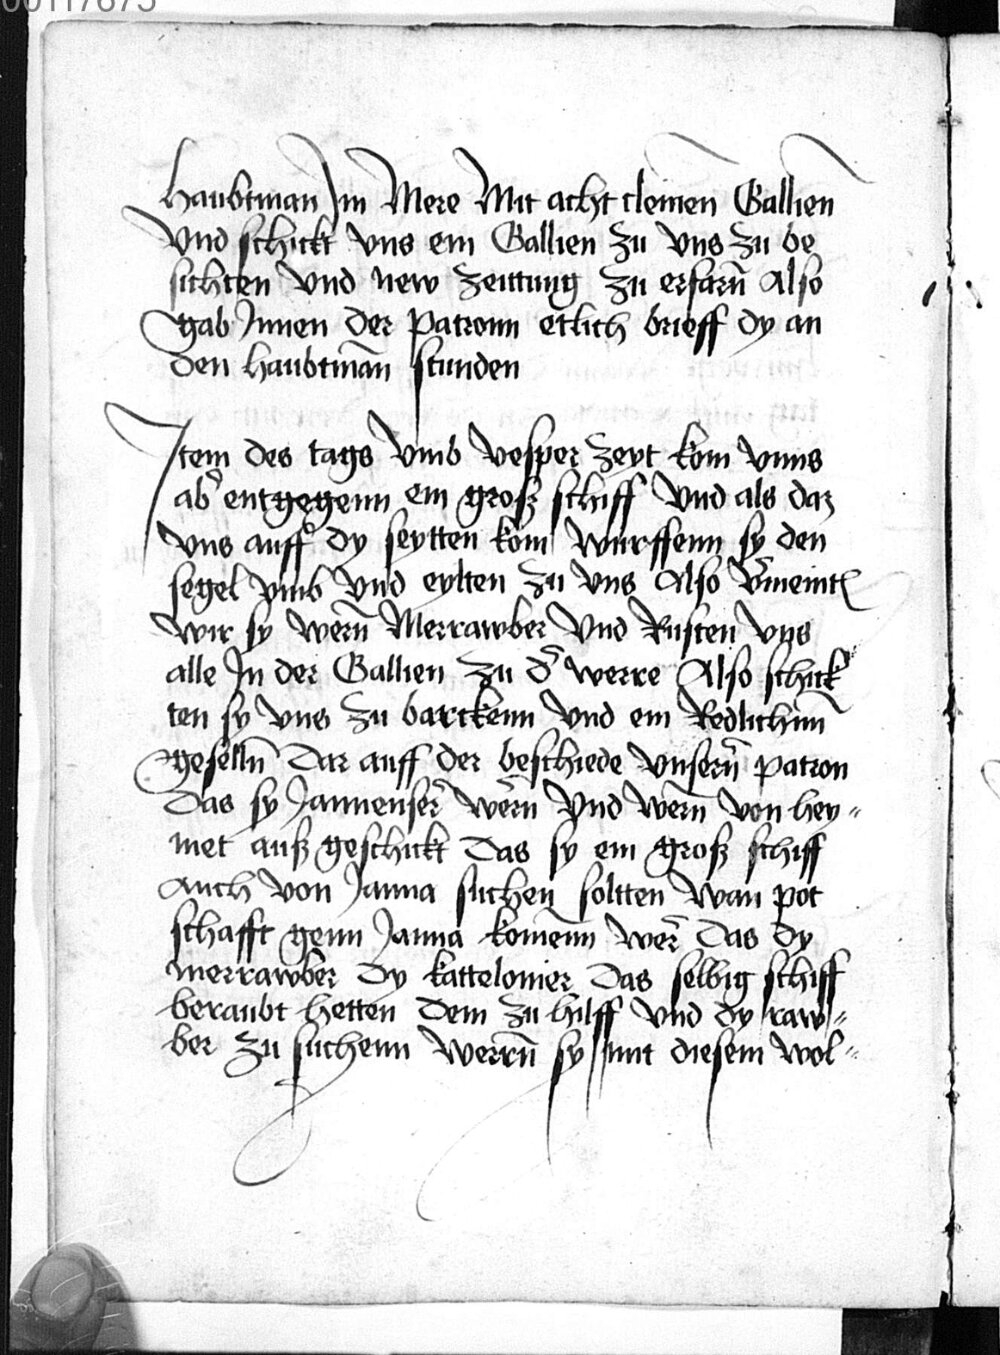 00117675
haubtman Jm Mere Mit acht cleinen Gallien
Vnd schickt vns ein Gallien zu vns zu be
sichten vnd new zeittung zu erfarn̄ Also
gab Jnnen der Patronn etlich brieff dy an
den haubtmān stunden
Jtem des tags vmb vesper zeyt kom vnns
ab entgegenn ein groß schiff vnd als daz
vns auff dy seytten kom wurffenn sy den
segel vmb vnd eylten zu vns Also v̄meint
wir sy wern̄ Merrawber Vnd Rusten vns
alle Jn der Gallien zu d̄ werre Also schick
ten sy vns zu barckenn vnd ein Redlichnn̄
geselln̄ Dar auff der beschiede vnsern̄ patron
Das sy Jannenser wern vnd wern̄ von hey„
met auß geschickt Das sy ein groß schiff
Auch von Janna suchen soltten Wan pot
schafft genn Janna komenn wer̄ Das dy
merrawber Dy kattelonier Das selbig schiff
beraubt hetten Dem zu hilff vnd dy raw„
ber zu suchenn werrn̄ sy mit diesem wol„